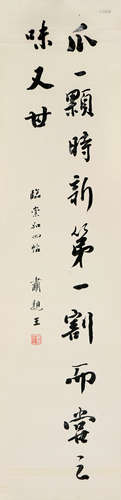 瓜一顆時新第一割而嘗之
味又甘
臨崇如心帖
肅親王